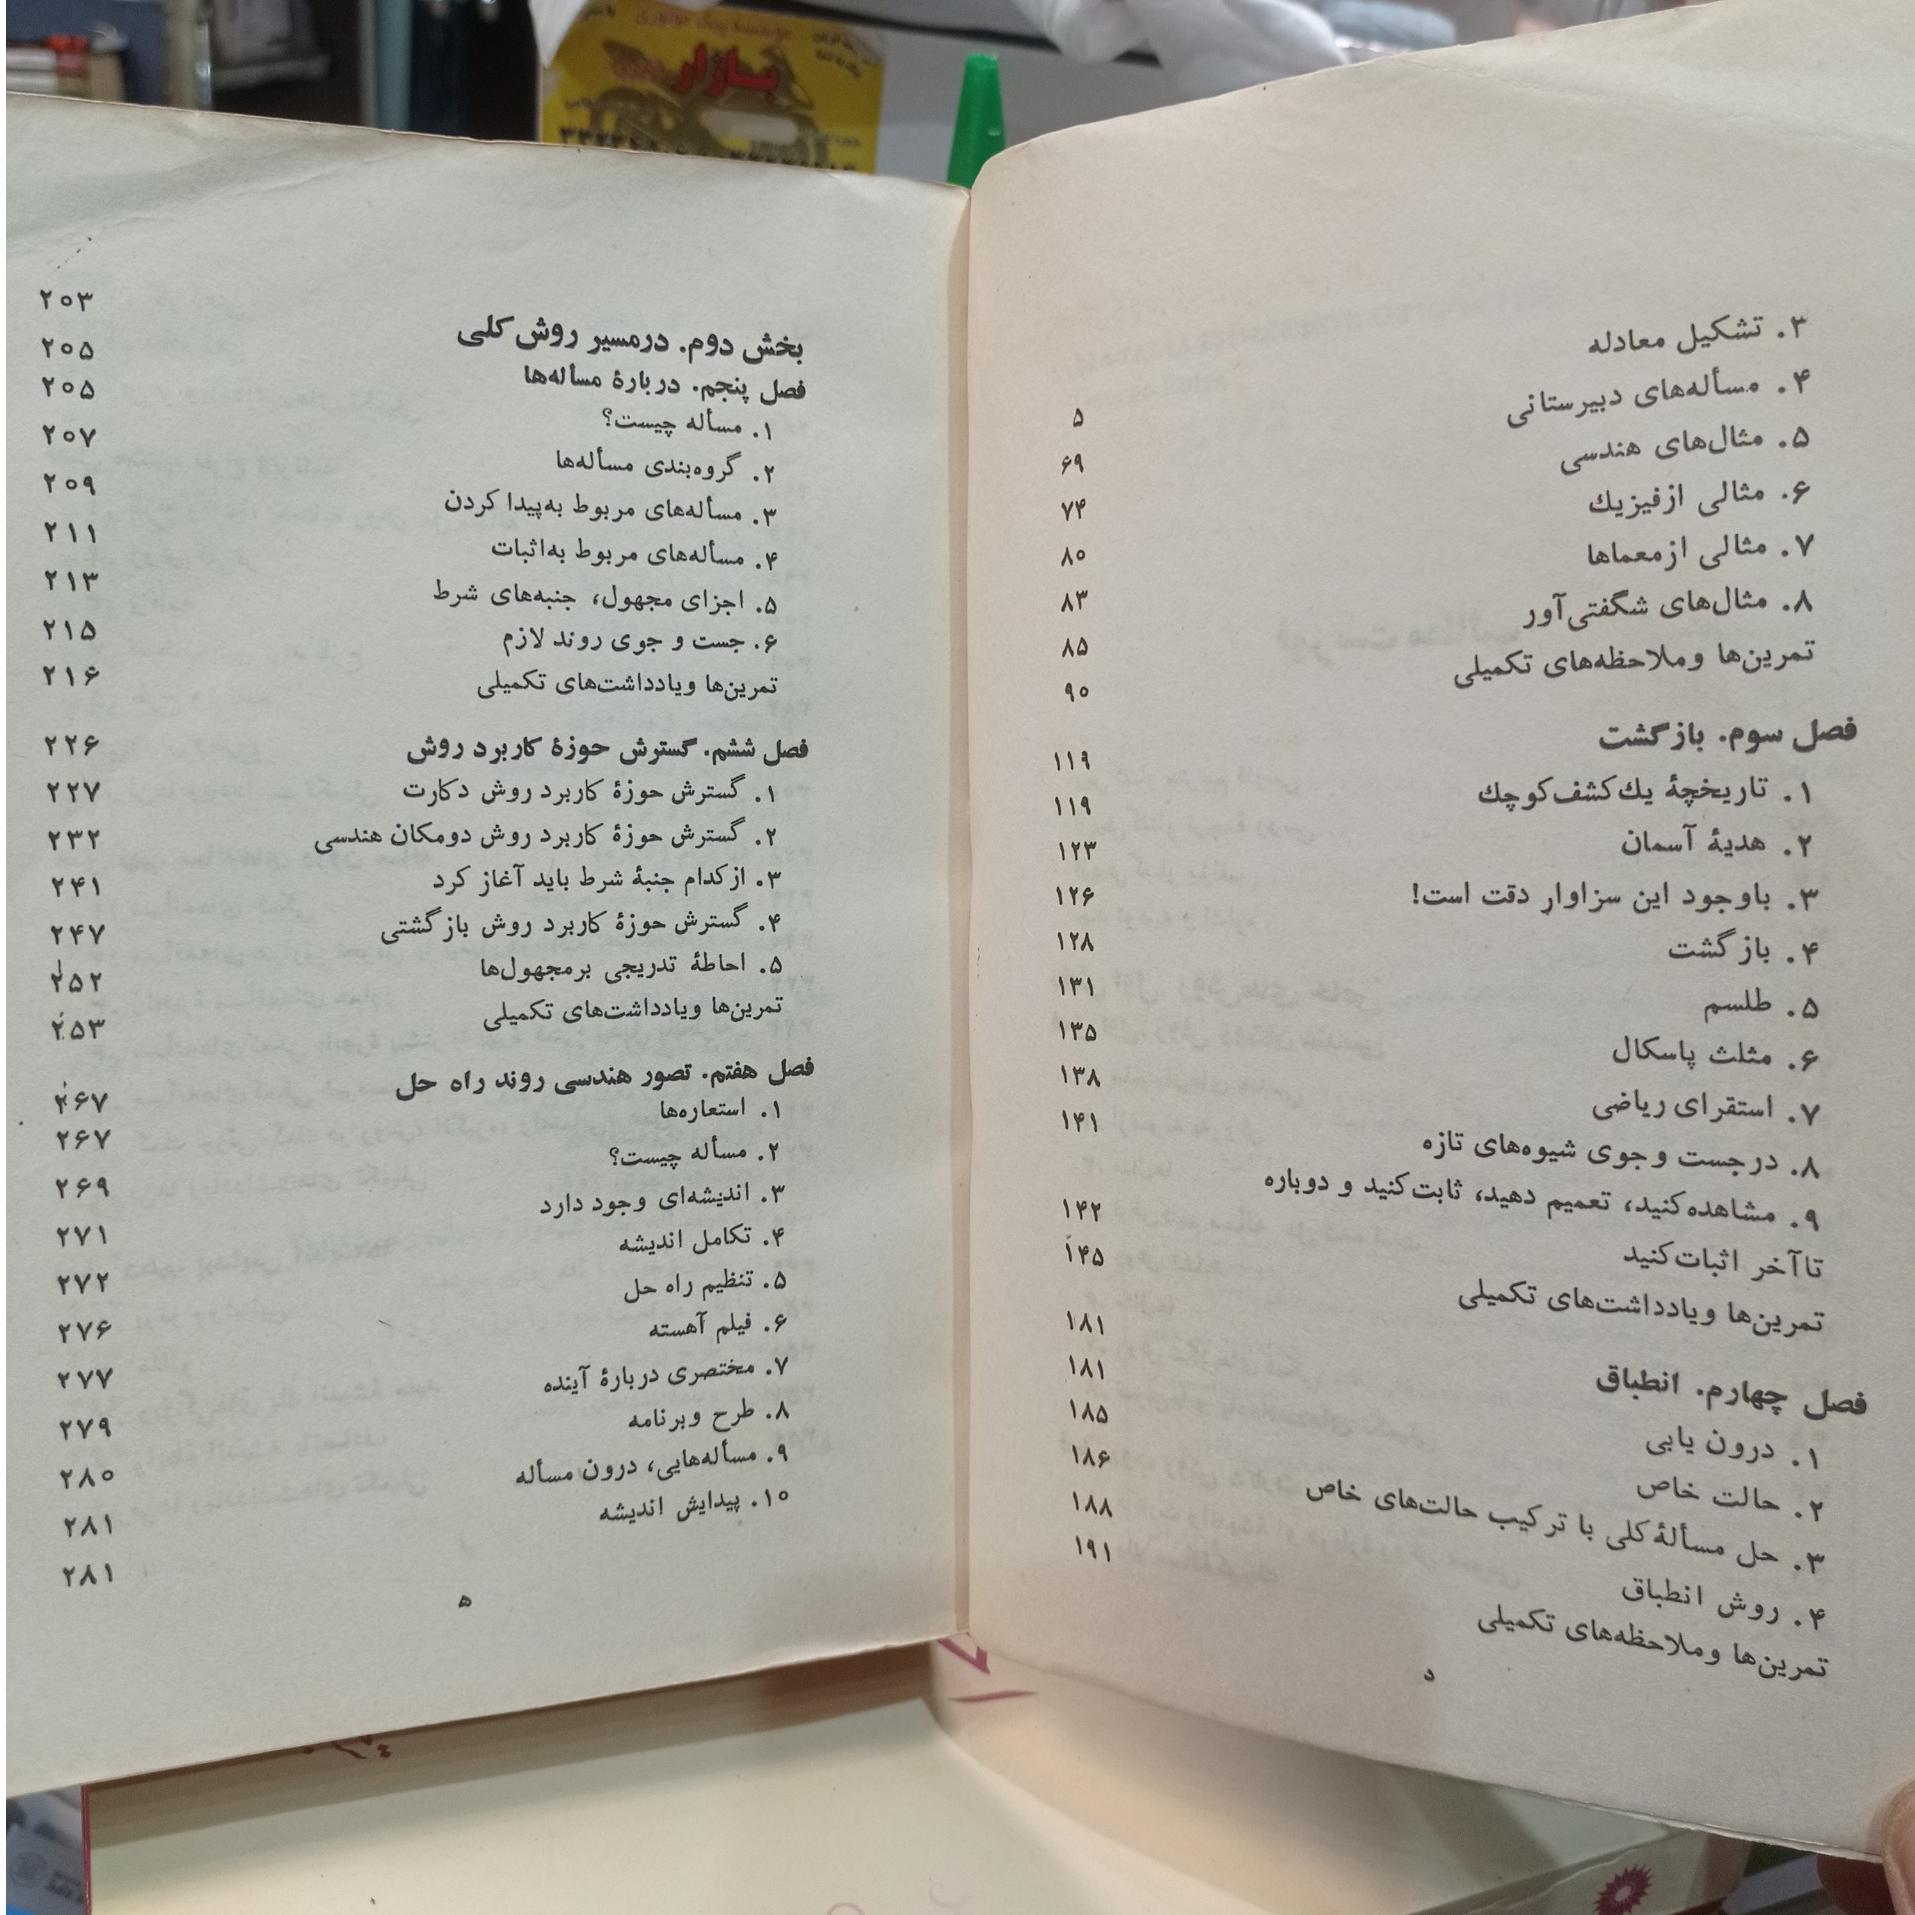 بازار
۳. تشکیل معادله ۵
۴. مسأله‌های دبیرستانی ۶۹
۵. مثال‌های هندسی ۷۴
۶. مثالی از فیزیك ۸۰
۷. مثالی از معماها ۸۳
۸. مثال‌های شگفتی‌آور ۸۵
تمرین‌ها و ملاحظه‌های تکمیلی ۹۰
فصل سوم. بازگشت ۱۱۹
۱. تاریخچهٔ یك کشف کوچك ۱۱۹
۲. هدیهٔ آسمان ۱۲۳
۳. با وجود این سزاوار دقت است! ۱۲۶
۴. بازگشت ۱۲۸
۵. طلسم ۱۳۱
۶. مثلث پاسکال ۱۳۵
۷. استقرای ریاضی ۱۳۸
۸. در جست و جوی شیوه‌های تازه ۱۴۱
۹. مشاهده کنید، تعمیم دهید، ثابت کنید و دوباره
تا آخر اثبات کنید ۱۴۲
تمرین‌ها و یادداشت‌های تکمیلی ۱۴۵
فصل چهارم. انطباق ۱۸۱
۱. درون یابی ۱۸۱
۲. حالت خاص ۱۸۵
۳. حل مسألهٔ کلی با ترکیب حالت‌های خاص ۱۸۶
۴. روش انطباق ۱۸۸
تمرین‌ها و ملاحظه‌های تکمیلی ۱۹۱
د
بخش دوم. در مسیر روش کلی ۲۰۳
فصل پنجم. دربارهٔ مسأله‌ها ۲۰۵
۱. مسأله چیست؟ ۲۰۵
۲. گروه‌بندی مسأله‌ها ۲۰۷
۳. مسأله‌های مربوط به پیدا کردن ۲۰۹
۴. مسأله‌های مربوط به اثبات ۲۱۱
۵. اجزای مجهول، جنبه‌های شرط ۲۱۳
۶. جست و جوی روند لازم ۲۱۵
تمرین‌ها و یادداشت‌های تکمیلی ۲۱۶
فصل ششم. گسترش حوزهٔ کاربرد روش ۲۲۶
۱. گسترش حوزهٔ کاربرد روش دکارت ۲۲۷
۲. گسترش حوزهٔ کاربرد روش دو مکان هندسی ۲۳۲
۳. از کدام جنبهٔ شرط باید آغاز کرد ۲۴۱
۴. گسترش حوزهٔ کاربرد روش بازگشتی ۲۴۷
۵. احاطهٔ تدریجی بر مجهول‌ها ۲۵۲
تمرین‌ها و یادداشت‌های تکمیلی ۲۵۳
فصل هفتم. تصور هندسی روند راه حل ۲۶۷
۱. استعاره‌ها ۲۶۷
۲. مسأله چیست؟ ۲۶۹
۳. اندیشه‌ای وجود دارد ۲۷۱
۴. تکامل اندیشه ۲۷۲
۵. تنظیم راه حل ۲۷۶
۶. فیلم آهسته ۲۷۷
۷. مختصری دربارهٔ آینده ۲۷۹
۸. طرح و برنامه ۲۸۰
۹. مسأله‌هایی، درون مسأله ۲۸۱
۱۰. پیدایش اندیشه ۲۸۱
ه